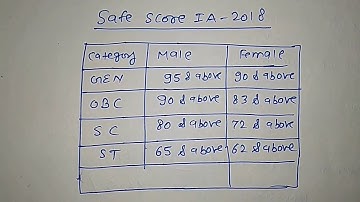 Safe Score IA-2018
Category Male Female
GEN 95 & above 90 & above
OBC 90 & above 83 & above
SC 80 & above 72 & above
ST 65 & above 62 & above